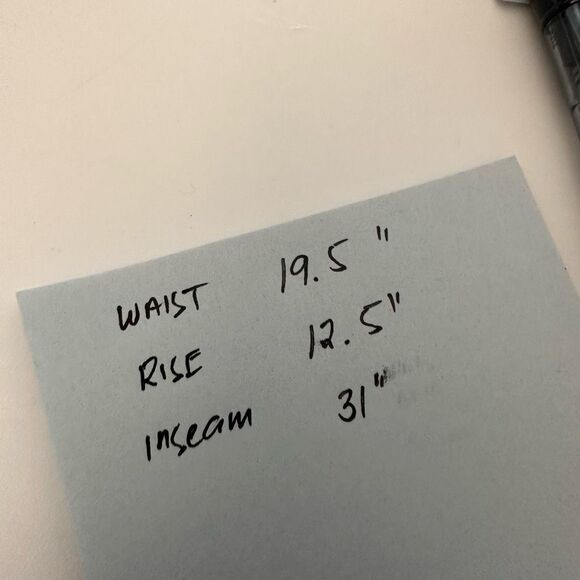 WAIST 19.5"
RISE 12.5"
inseam 31"